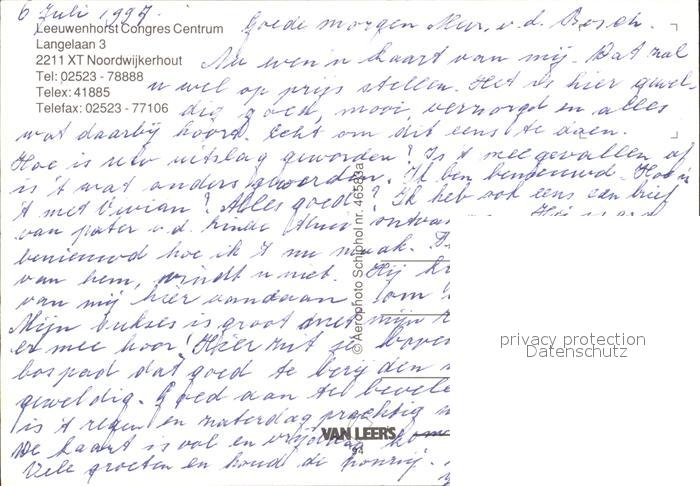 6 Juli 1997. Goede morgen Mevr. v.d. Bosch.
Leeuwenhorst Congres Centrum
Langelaan 3
2211 XT Noordwijkerhout
Tel: 02523 - 78888
Telex: 41885
Telefax: 02523 - 77106
Nu even 'n kaart van mij. Dat zal
u wel op prijs stellen. Het is hier gewel-
dig goed, mooi verzorgd en alles
wat daarbij hoord. Echt om dit eens te doen.
Hoe is uw uitslag geworden? Is 't meegevallen of
is 't wat anders geworden. Ik ben benieuwd. Hoe is
't met Vivian? Alles goed? Ik heb ook eens een brief
van pater v.d.
benieuwd hoe ik 't nu maak.
van hem, vindt u niet. Hij
van mij hier vandaan om
Mijn is groot met mijn
er mee hoor! Hier zit je
bospad dat goed te berijden
geweldig. Goed aan te
is 't regen en zaterdag prachtig
De kaart is vol en vrijdag
Vele groeten en houd de
© Aerophoto Schiphol nr. 46583a
VAN LEER'S
94
privacy protection
Datenschutz